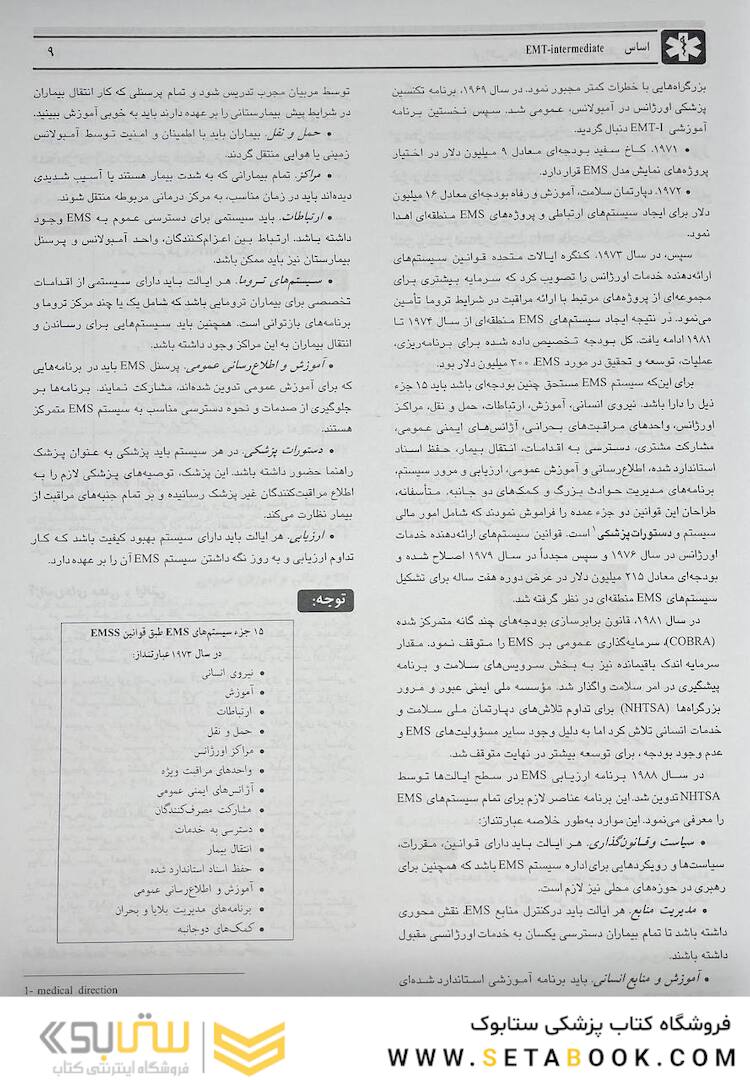 اساس EMT-intermediate
۹
بزرگراه‌هایی با خطرات کمتر مجبور نمود. در سال ۱۹۶۹، برنامه تکنسین
پزشکی اورژانس در آمبولانس، عمومی شد. سپس نخستین برنامه
آموزشی EMT-I دنبال گردید.
• ۱۹۷۱. کاخ سفید بودجه‌ای معادل ۹ میلیون دلار در اختیار
پروژه‌های نمایش مدل EMS قرار دارد.
• ۱۹۷۲. دپارتمان سلامت، آموزش و رفاه بودجه‌ای معادل ۱۶ میلیون
دلار برای ایجاد سیستم‌های ارتباطی و پروژه‌های EMS منطقه‌ای اهدا
نمود.
سپس، در سال ۱۹۷۳، کنگره ایالات متحده قوانین سیستم‌های
ارائه‌دهنده خدمات اورژانس را تصویب کرد که سرمایه بیشتری برای
مجموعه‌ای از پروژه‌های مرتبط با ارائه مراقبت در شرایط تروما تأمین
می‌نمود. در نتیجه ایجاد سیستم‌های EMS منطقه‌ای از سال ۱۹۷۴ تا
۱۹۸۱ ادامه یافت. کل بودجه تخصیص داده شده برای برنامه‌ریزی،
عملیات، توسعه و تحقیق در مورد EMS، ۳۰۰ میلیون دلار بود.
برای این‌که سیستم EMS مستحق چنین بودجه‌ای باشد باید ۱۵ جزء
ذیل را دارا باشد. نیروی انسانی، آموزش، ارتباطات، حمل و نقل، مراکز
اورژانس، واحدهای مراقبت‌های بحرانی، آژانس‌های ایمنی عمومی،
مشارکت مشتری، دسترسی به اقدامات، انتقال بیمار، حفظ اسناد
استاندارد شده، اطلاع‌رسانی و آموزش عمومی، ارزیابی و مرور سیستم،
برنامه‌های مدیریت حوادث بزرگ و کمک‌های دو جانبه. متأسفانه،
طراحان این قوانین دو جزء عمده را فراموش نمودند که شامل امور مالی
سیستم و دستورات پزشکی۱ است. قوانین سیستم‌های ارائه‌دهنده خدمات
اورژانس در سال ۱۹۷۶ و سپس مجدداً در سال ۱۹۷۹ اصلاح شده و
بودجه‌ای معادل ۲۱۵ میلیون دلار در عرض دوره هفت ساله برای تشکیل
سیستم‌های EMS منطقه‌ای در نظر گرفته شد.
در سال ۱۹۸۱، قانون برابرسازی بودجه‌های چند گانه متمرکز شده
(COBRA)، سرمایه‌گذاری عمومی بر EMS را متوقف نمود. مقدار
سرمایه اندک باقیمانده نیز به بخش سرویس‌های سلامت و برنامه
پیشگیری در امر سلامت واگذار شد. مؤسسه ملی ایمنی عبور و مرور
بزرگراه‌ها (NHTSA) برای تداوم تلاش‌های دپارتمان ملی سلامت و
خدمات انسانی تلاش کرد اما به دلیل وجود سایر مسؤولیت‌های EMS و
عدم وجود بودجه، برای توسعه بیشتر در نهایت متوقف شد.
در سال ۱۹۸۸ برنامه ارزیابی EMS در سطح ایالت‌ها توسط
NHTSA تدوین شد. این برنامه عناصر لازم برای تمام سیستم‌های EMS
را معرفی می‌نمود. این موارد به‌طور خلاصه عبارتنداز:
• سیاست و قانون‌گذاری. هر ایالت باید دارای قوانین، مقررات،
سیاست‌ها و رویکردهایی برای اداره سیستم EMS باشد که همچنین برای
رهبری در حوزه‌های محلی نیز لازم است.
• مدیریت منابع. هر ایالت باید درکنترل منابع EMS، نقش محوری
داشته باشد تا تمام بیماران دسترسی یکسان به خدمات اورژانسی مقبول
داشته باشند.
• آموزش و منابع انسانی. باید برنامه آموزشی استاندارد شده‌ای
توسط مربیان مجرب تدریس شود و تمام پرسنلی که کار انتقال بیماران
در شرایط پیش بیمارستانی را بر عهده دارند باید به خوبی آموزش ببینند.
• حمل و نقل. بیماران باید با اطمینان و امنیت توسط آمبولانس
زمینی یا هوایی منتقل گردند.
• مراکز. تمام بیمارانی که به شدت بیمار هستند یا آسیب شدیدی
دیده‌اند باید در زمان مناسب، به مرکز درمانی مربوطه منتقل شوند.
• ارتباطات. باید سیستمی برای دسترسی عموم به EMS وجود
داشته باشد. ارتباط بین اعزام‌کنندگان، واحد آمبولانس و پرسنل
بیمارستان نیز باید ممکن باشد.
• سیستم‌های تروما. هر ایالت باید دارای سیستمی از اقدامات
تخصصی برای بیماران ترومایی باشد که شامل یک یا چند مرکز تروما و
برنامه‌های بازتوانی است. همچنین باید سیستم‌هایی برای رساندن و
انتقال بیماران به این مراکز وجود داشته باشد.
• آموزش و اطلاع‌رسانی عمومی. پرسنل EMS باید در برنامه‌هایی
که برای آموزش عمومی تدوین شده‌اند، مشارکت نمایند. برنامه‌ها بر
جلوگیری از صدمات و نحوه دسترسی مناسب به سیستم EMS متمرکز
هستند.
• دستورات پزشکی. در هر سیستم باید پزشکی به عنوان پزشک
راهنما حضور داشته باشد. این پزشک، توصیه‌های پزشکی لازم را به
اطلاع مراقبت‌کنندگان غیر پزشک رسانیده و بر تمام جنبه‌های مراقبت از
بیمار نظارت می‌کند.
• ارزیابی. هر ایالت باید دارای سیستم بهبود کیفیت باشد که کار
تداوم ارزیابی و به روز نگه داشتن سیستم EMS آن را بر عهده دارد.
توجه:
۱۵ جزء سیستم‌های EMS طبق قوانین EMSS
در سال ۱۹۷۳ عبارتنداز:
• نیروی انسانی
• آموزش
• ارتباطات
• حمل و نقل
• مراکز اورژانس
• واحدهای مراقبت ویژه
• آژانس‌های ایمنی عمومی
• مشارکت مصرف‌کنندگان
• دسترسی به خدمات
• انتقال بیمار
• حفظ اسناد استاندارد شده
• آموزش و اطلاع‌رسانی عمومی
• برنامه‌های مدیریت بلایا و بحران
• کمک‌های دوجانبه
1- medical direction
فروشگاه کتاب پزشکی ستابوک
WWW.SETABOOK.COM
ستابوک
فروشگاه اینترنتی کتاب